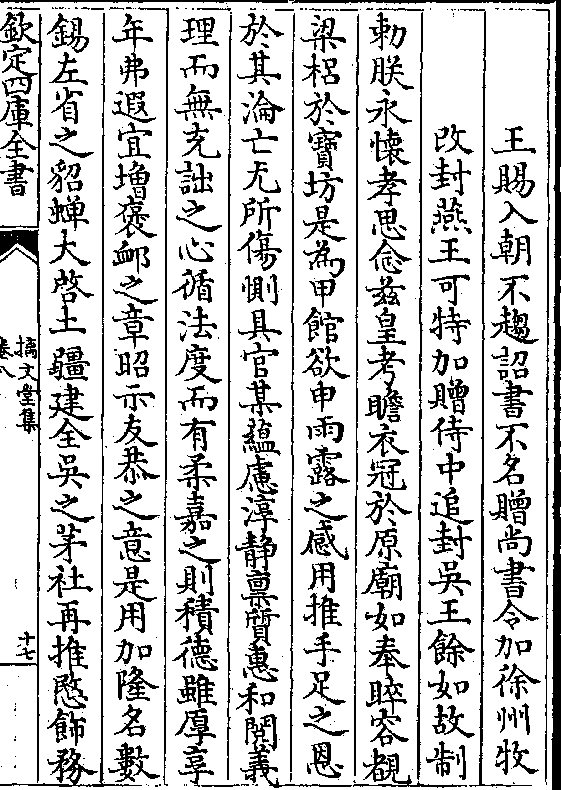 王賜入朝不趨詔書不名贈尚書令加徐州牧
改封燕王可特加贈侍中追封吳王餘如故制
勅朕永懷孝思念兹皇考瞻衣冠於原廟如奉睟容覩
梁梠於寶坊是為甲館欲申雨露之感用推手足之恩
於其淪亡尤所傷惻具官某蘊慮淳静禀質惠和閱義
理而無充詘之心循法度而有柔嘉之則積德雖厚享
年弗遐宜增褒卹之章昭示友恭之意是用加隆名數
錫左省之貂蟬大啓土疆建全吳之茅社再推愍飾務
欽定四庫全書
摛文堂集
卷八
十七